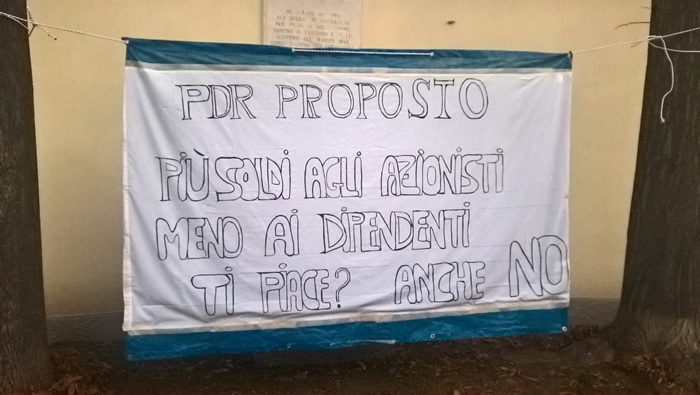 PDR PROPOSTO
PIÙ SOLDI AGLI AZIONISTI
MENO AI DIPENDENTI
TI PIACE? ANCHE NO